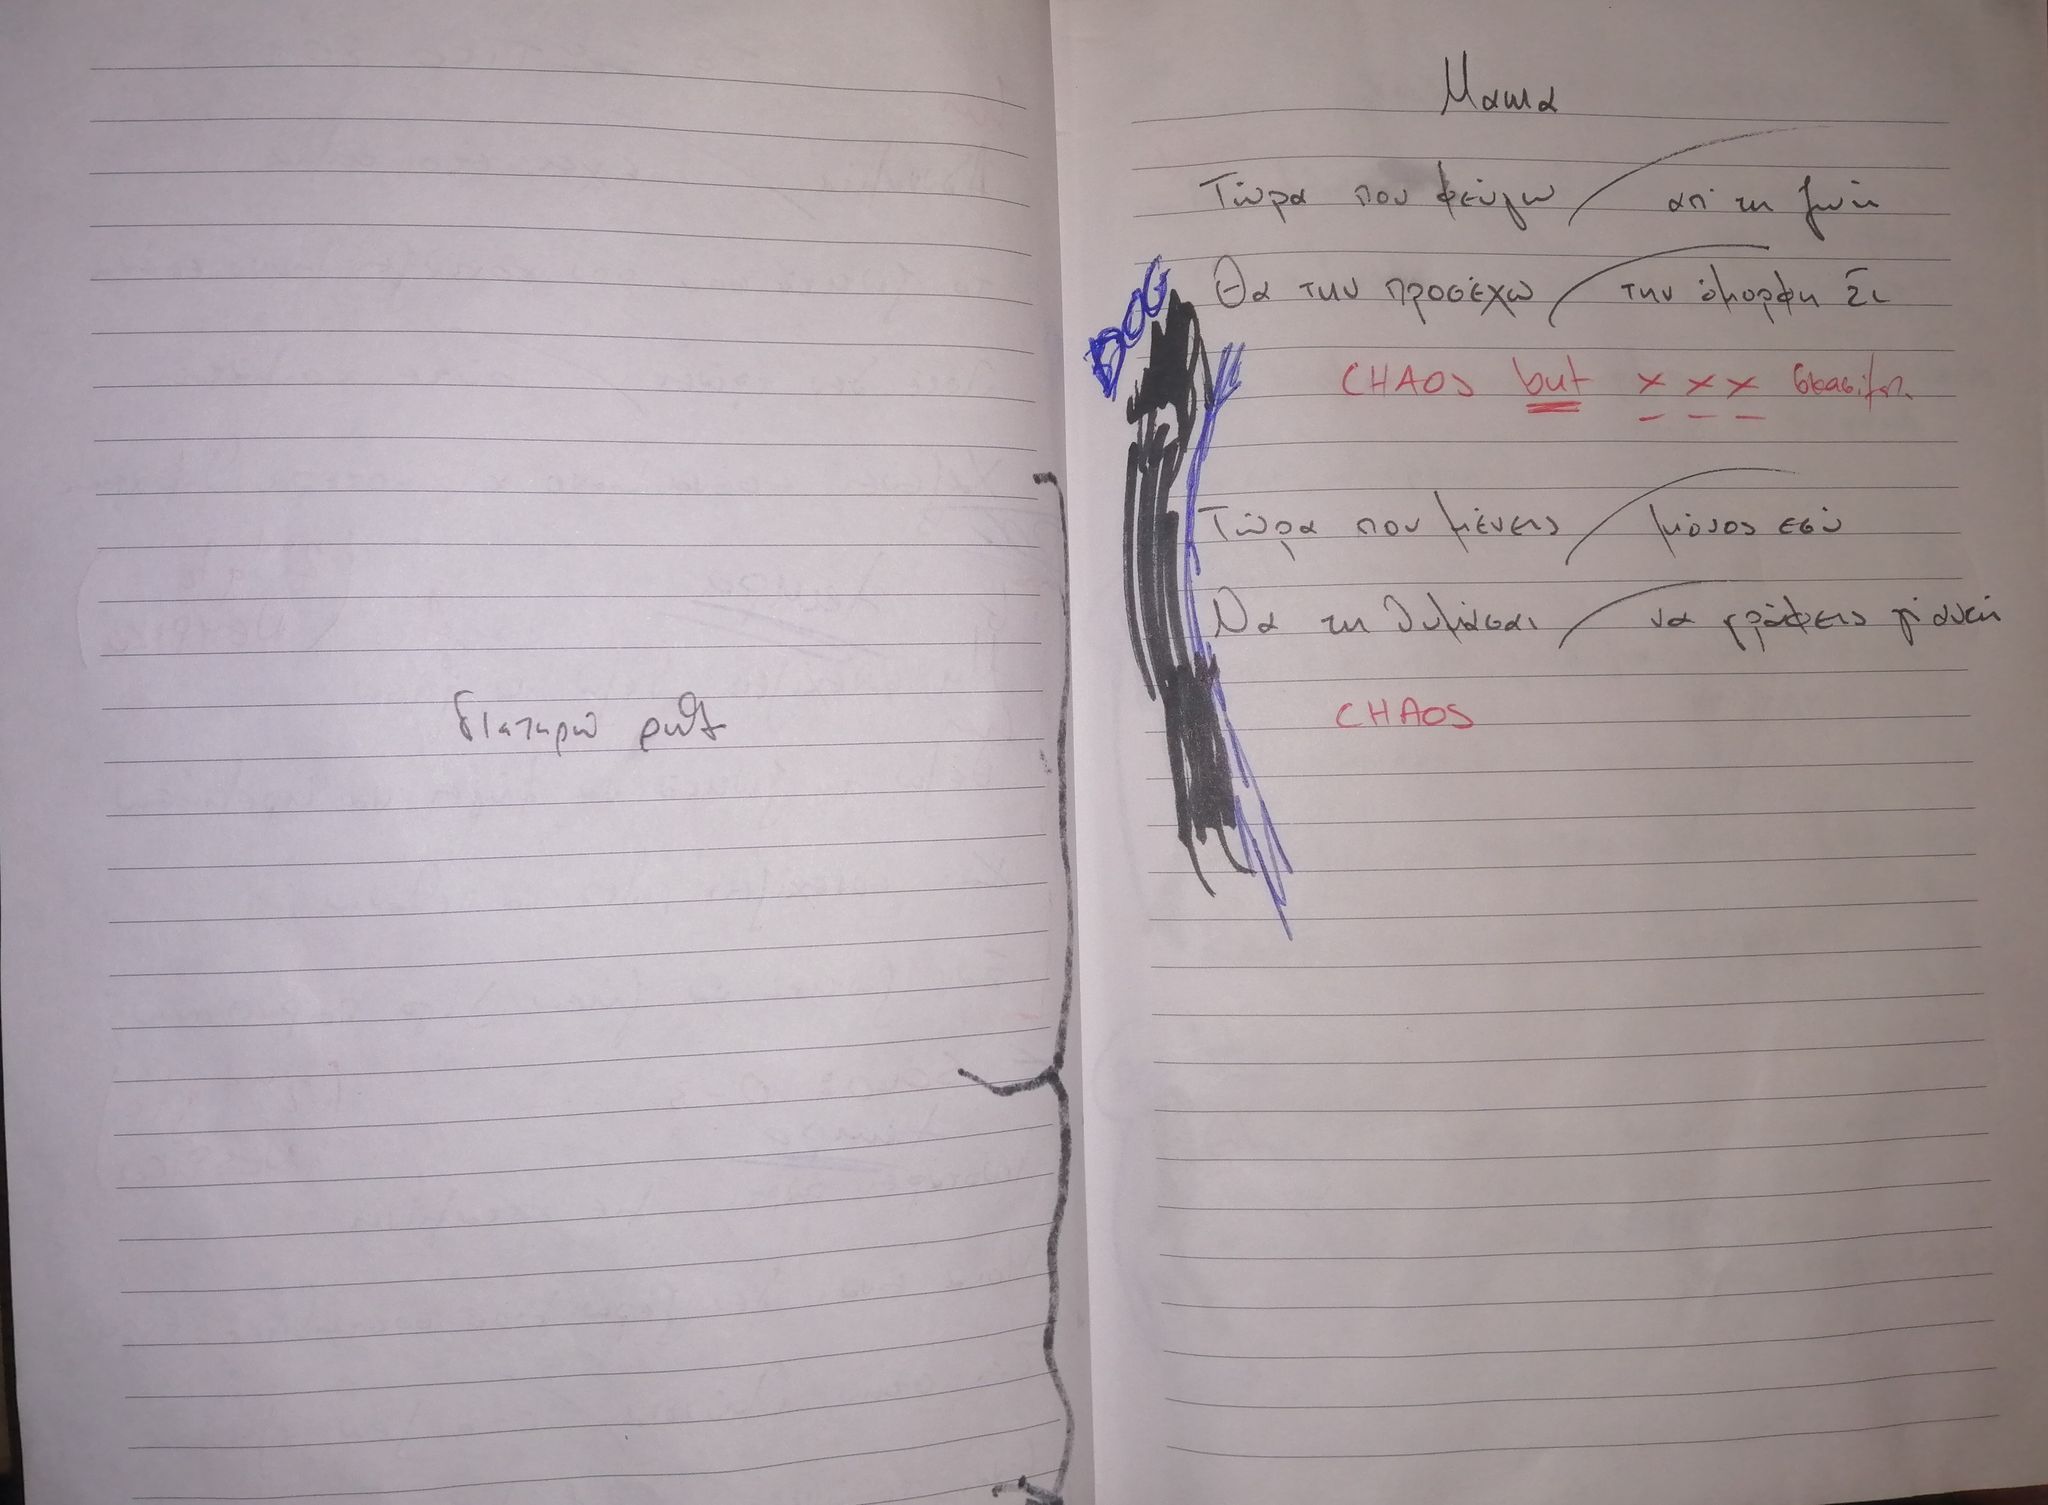 διατηρώ ρυθ
Μαμα
Τώρα που φεύγω / απ τη ζωή
Θα την προσέχω / την όμορφη Σι
DOG
CHAOS but x x x
Τώρα που μένεις / μόνος εσύ
Να τη θυμάσαι / να γράφεις γι αυτή
CHAOS